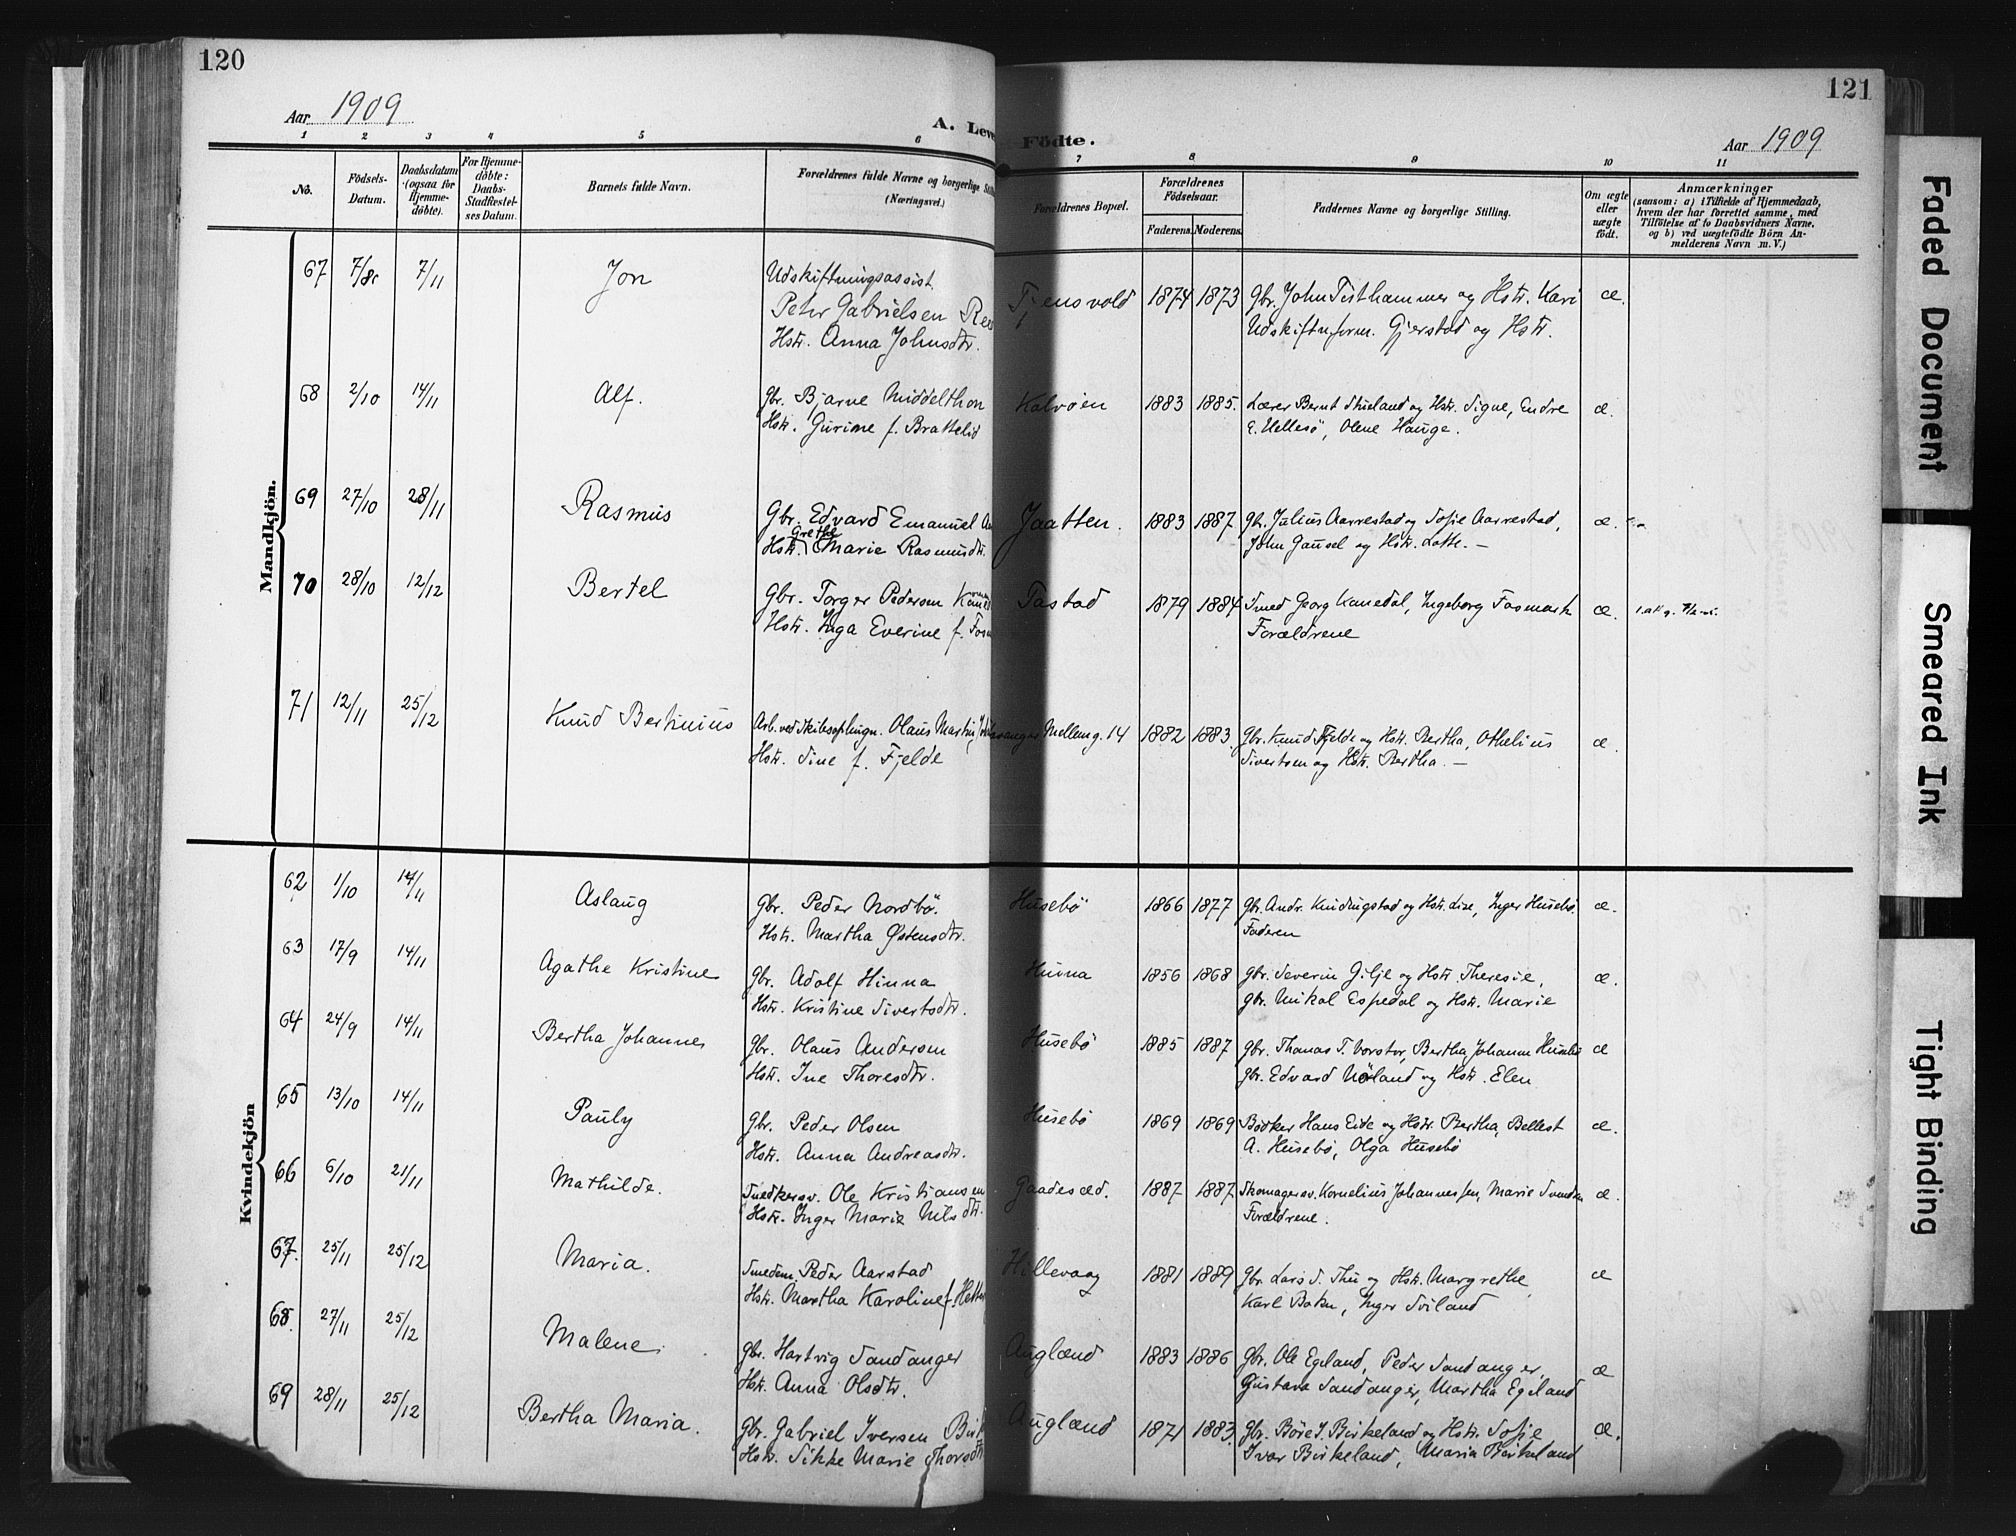 120
Aar 1909
A. Leve
1 2 3 4 5 6
No.
Födsels-
Datum.
Daabsdatum
(ogsaa for
Hjemme-
döbte).
For Hjemme-
döbte:
Daabs-
Stadfæstel-
ses Datum.
Barnets fulde Navn.
Forældrenes fulde Navne og borgerlige Stil
(Næringsvei.)
Mandkjön.
67 7/8 7/11 Jon Udskiftningsassist.
Peter Gabrielsen
Hstr. Anna Johnsdtr.
68 2/10 14/11 Alf. Gbr. Bjarne Middelthon
Hstr. Gurine f. Brattelid
69 27/10 28/11 Rasmus Gbr. Edvard Emanuel
Grethe
Hstr. Marie Rasmusdtr.
70 28/10 12/12 Bertel Gbr. Torger Pedersen
Hstr. Inga Everine f.
71 12/11 25/12 Knud Bertinius Arb. ved Olaus Martin
Hstr. Sine f. Fjelde
Kvindekjön
62 1/10 14/11 Aslaug Gbr. Peder Nordbö.
Hstr. Martha Østensdtr.
63 17/9 14/11 Agathe Kristine Gbr. Adolf Hinna
Hstr. Kristine Sivertsdtr.
64 24/9 14/11 Bertha Johanne Gbr. Olaus Andersen
Hstr. Ine Thoresdtr.
65 13/10 14/11 Pauly Gbr. Peder Olsen
Hstr. Anna Andreasdtr.
66 6/10 21/11 Mathilde. Snedkersv. Ole Kristiansen
Hstr. Inger Marie Nilsdtr.
67. 25/11 25/12 Maria. Smedem. Peder Aarstad
Hstr. Martha Karoline f.
68. 27/11 25/12 Malene. Gbr. Hartvig Sandanger
Hstr. Anna Olsdtr.
69 28/11 25/12 Bertha Maria. Gbr. Gabriel Iversen
Hstr. Sikke Marie
121
Födte.
Aar 1909
7 8 9 10 11
Forældrenes Bopæl.
Forældrenes
Födselsaar.
Faderens. Moderens.
Faddernes Navne og borgerlige Stilling.
Om ægte
eller
uægte
födt.
Anmærkninger
(saasom: a) i Tilfælde af Hjemmedaab,
hvem der har forrettet samme, med
Tilföielse af to Daabsvidners Navne,
og b) ved uægtefödte Börn An-
melderens Navn m. V.)
Tjensvold 1874 1873 Gbr. John Tisthammer og Hstr. Kari æ.
Udskiftn.form. Gjerstad og Hstr.
Kalvøen 1883 1885. Lærer Bernt og Hstr. Signe, Endre æ.
E. Hellesö, Olene Hauge.
Jaatten. 1883 1887. Gbr. Julius Aarrestad og Sofie Aarrestad, æ.
John Gausel og Hstr. Lotte. —
Tastad 1879 1884 Smed Georg Kanedal, Ingeborg Fosmark æ.
Forældrene
Mellemg. 14 1882 1883. Gbr. Knud Fjelde og Hstr. Bertha, Othelius æ.
Sivertsen og Hstr. Bertha. —
Husebö 1866 1877 Gbr. Andr. og Hstr. Lise, Inger Husebö. æ.
Faderen
Hinna 1856 1868 Gbr. Severin Gilje og Hstr. Theresie, æ.
Gbr. Mikal Espedal og Hstr. Marie
Husebö 1885 1887 Gbr. Thomas T. Bertha Johanne Husebö æ
Gbr. Edvard og Hstr. Elen
Husebö 1869 1869 Bödker Hans Eide og Hstr. Bertha, æ.
A. Husebö, Olga Husebö
1887 1887. Skomagersv. Kornelius Johannessen, Marie æ.
Forældrene.
Hillevaag 1881 1889 Gbr. Lars S. Thu og Hstr. Margrethe, æ
Karl Inger Sviland
Auglænd 1883 1886 Gbr. Ole Egeland, Peder Sandanger, æ
Gustava Sandanger, Martha Egeland
Auglænd 1871 1883. Gbr. Böre I. Birkeland og Hstr. Sofie æ.
Ivar Birkeland, Maria Birkeland
Faded Document
Smeared Ink
Tight Binding